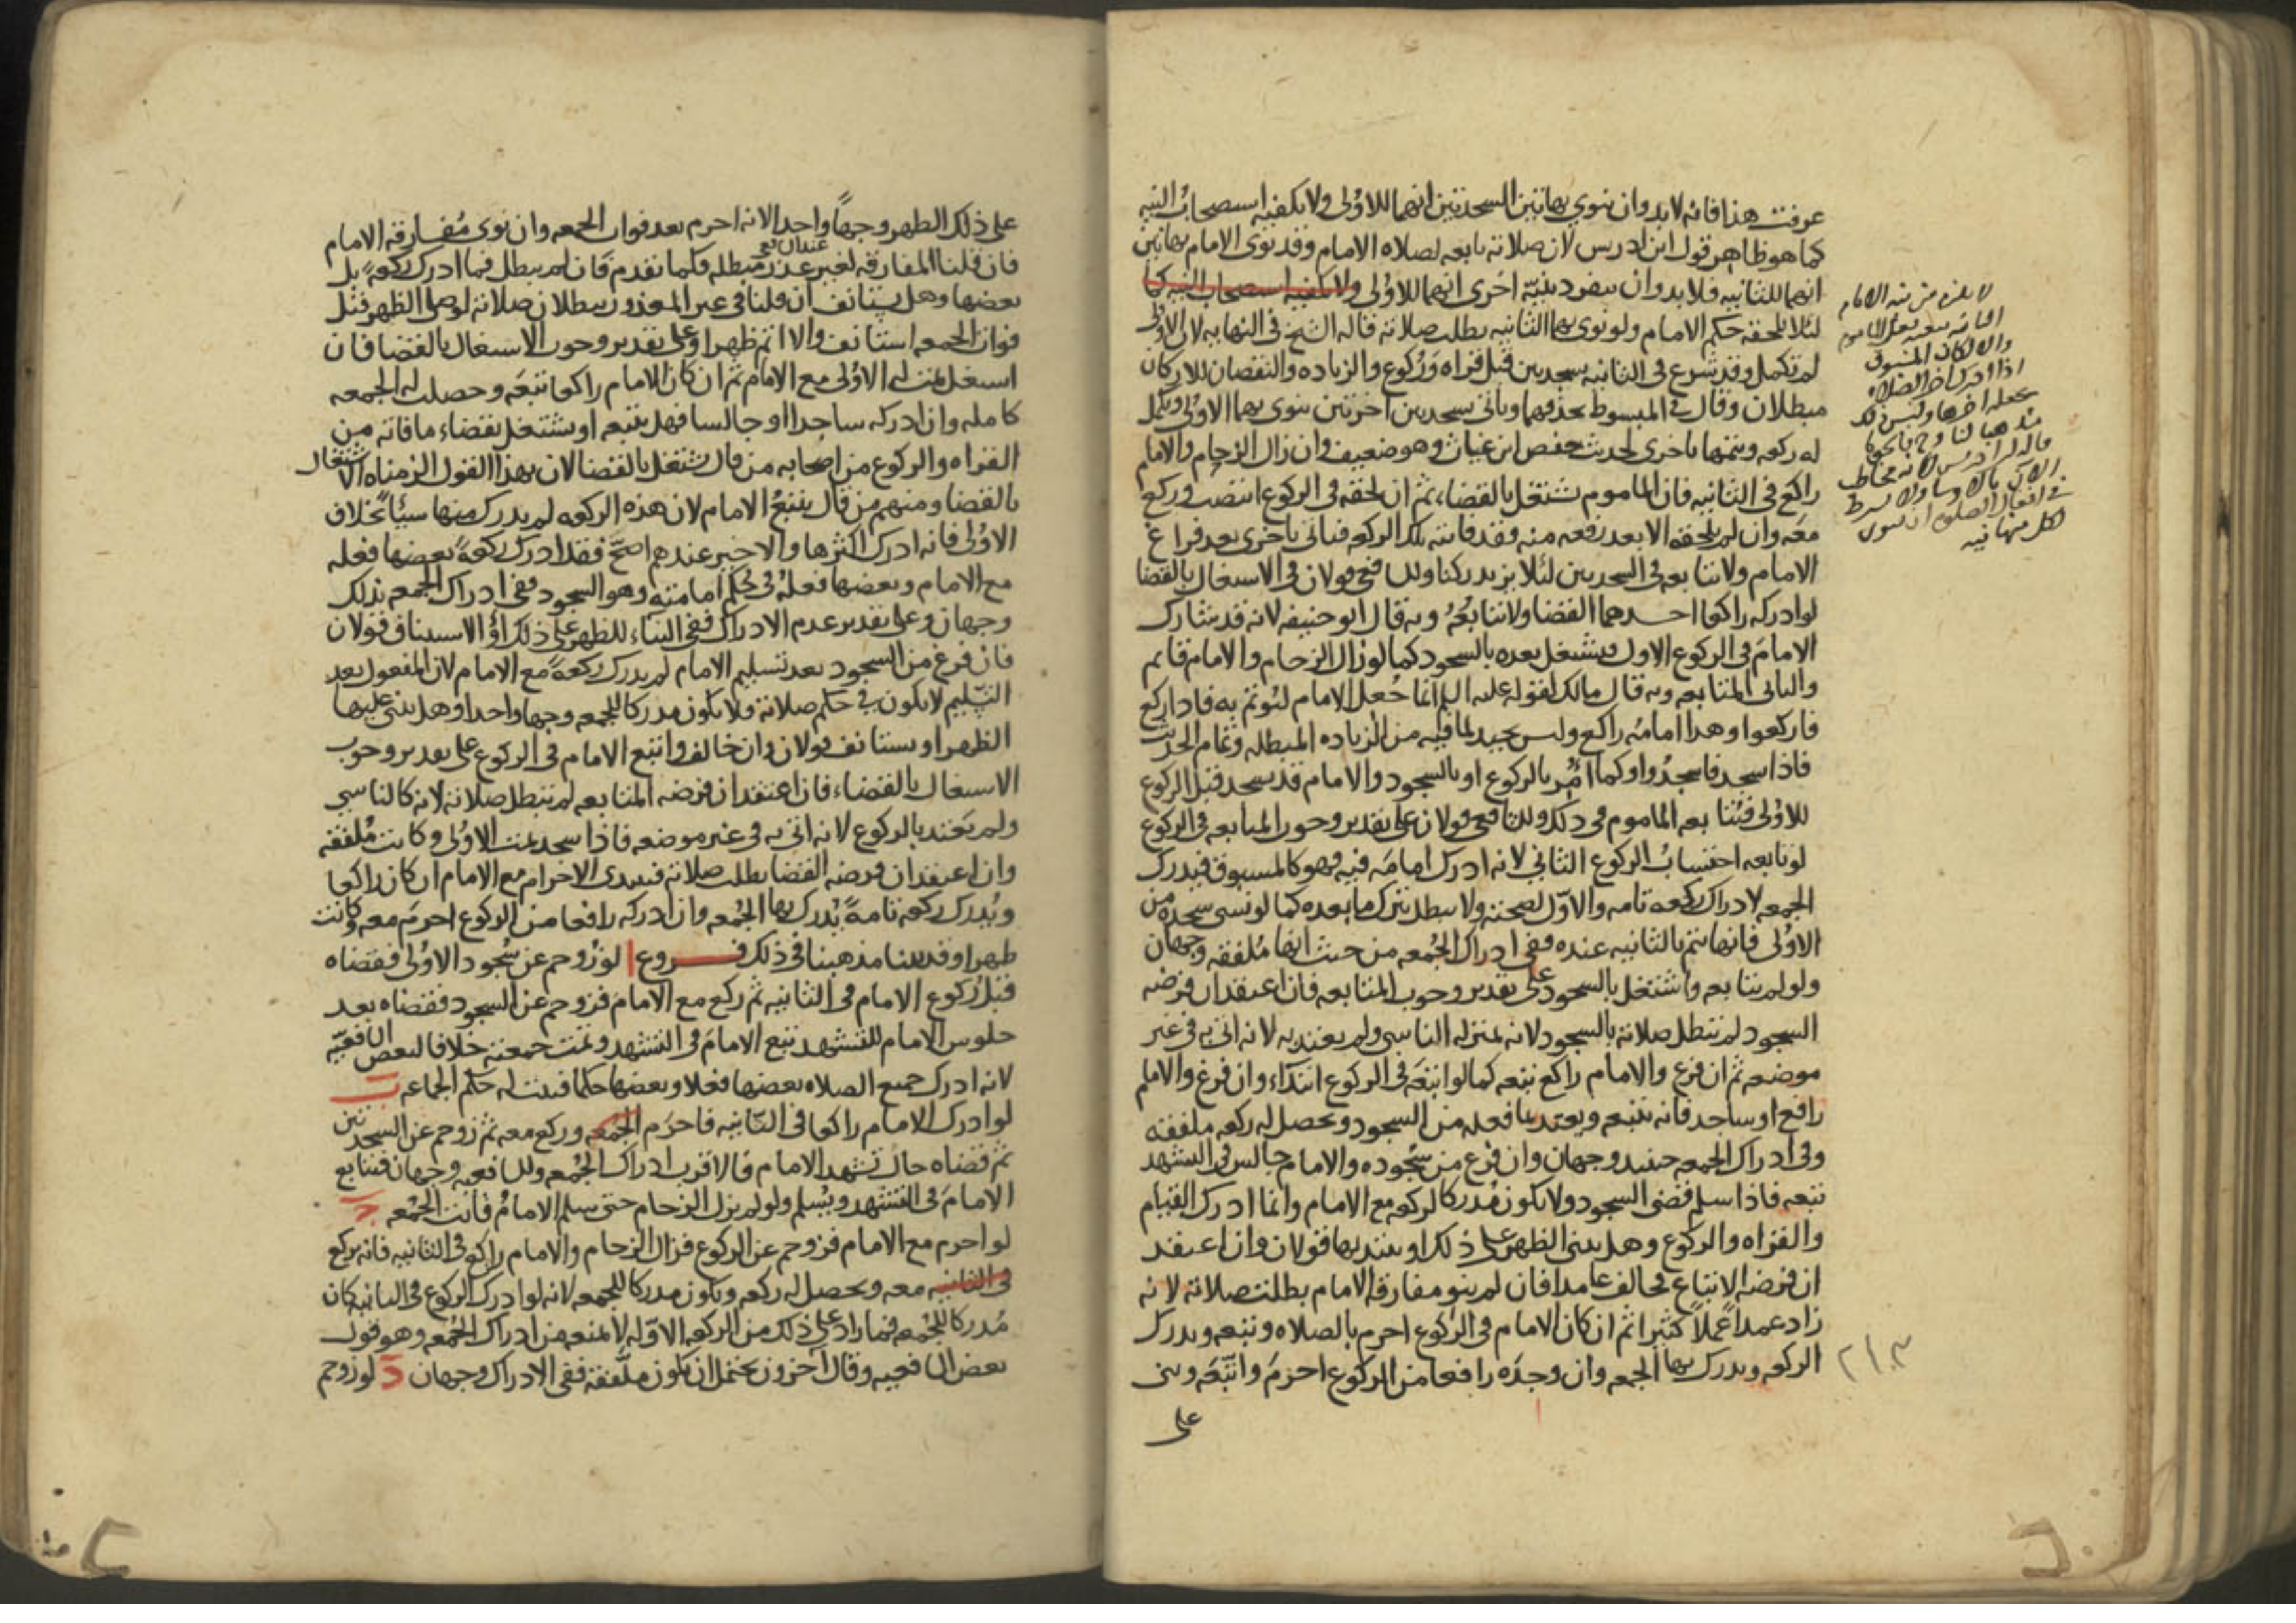 عرفت هذا فانه لا بد وان ينوي بهاتين السجدتين انهما للاولى ولا يكفيه استصحاب النيه
كما هو ظاهر قول ابن ادريس لان صلاته تابعه لصلاه الامام وقد نوى الامام بهاتين
انهما للثانيه فلا بد وان ينفرد بنيّة اخرى انهما للاولى ولا يكفيه استصحاب النيه كما
لئلا يلحقه حكم الامام ولو نوى بهما الثانيه بطلت صلاته قاله الشيخ في النهايه لان الاولى
لم تكمل وقد شرع في الثانيه بسجدتين قبل قراه وركوع والزياده والنقصان للاركان
مبطلان وقال في المبسوط يحذفهما وياتى بسجدتين اخرتين ينوى بهما الاولى ويكمل
له ركعه ويتمها باخرى لحديث حفص ابن غياث وهو ضعيف وان زال الزحام والامام
راكع في الثانيه فان الماموم يشتغل بالقضاء، ثم ان لحقه في الركوع انتصب وركع
معه وان لم يلحقه الا بعد رفعه منه فقد فاتته تلك الركعه فياتى باخرى بعد فراغ
الامام ولا يتابعه في السجدتين لئلا يزيد ركنا وللشافعي قولان في الاشتغال بالقضا
لو ادركه راكعا احدهما القضا ولا يتابعُهُ وبه قال ابو حنيفه لانه قد شارك
الامامَ في الركوع الاول فيشتغل بعده بالسجود كما لو زال الزحام والامام قائم
والثانى المتابعه وبه قال مالك لقوله عليه السلم انما جُعل الامام ليُوتم به فاذا ركع
فاركعوا وهذا امامُه راكع وليس بجيد لما فيه من الزياده المبطله وتمام الحديث
فاذا سجد فاسجدُوا وكما اُمر بالركوع اُمر بالسجود والامام قد سجد قبل الركوع
للاولى فيُتابعه الماموم في ذلك وللشافعي قولان على تقدير وجوب المتابعه في الركوع
لو تابعه احتسابُ الركوع الثاني لانه ادرك امامَه فيه فهو كالمسبوق فيدرك
الجمعه لادراك ركعه تامه والاوّل لصحته ولا يبطل بترك ما بعده كما لو نسي سجده من
الاولى فانها تتم بالثانيه عنده وفي ادراك الجُمعه من حيث انها مُلفقه وجهان
ولو لم يتابعه واشتغل بالسجود على تقدير وجوب المتابعه فان اعتقد ان فرضه
السجود لم تبطل صلاته بالسجود لانه بمنزله الناسى ولم يعتد به لانه اتى به في غير
موضعه ثم ان فرغ والامام راكع تبعه كما لو اتبعَه في الركوع ابتدَاء وان فرغ والامام
رافع او ساجد فانه يتبعه ويعتد بما فعله من السجود ويحصل له ركعه ملفقه
وفي ادراك الجمعه حينئذ وجهان وان فرغ من سُجوده والامام جالس في التشهد
تبعه فاذا سلم قضى السجود ولا يكون مُدركا لركعه مع الامام وانما ادرك القيام
والقراه والركوع وهل يبنى الظهر على ذلك او يبتديها قولان وان اعتقد
ان فرضه الاتباع فخالف عامدا فان لم ينو مفارقه الامام بطلت صلاته لانه
زاد عمداً عملاً كثيرا ثم ان كان الامام في الركوع احرم بالصلاه وتبعه ويدرك
الركعه ويدرك بها الجمعه وان وجدَه رافعا من الركوع احرمَ واتّبَعَه وبنى
على
لا يلزم من نيه الامام
الثانيه تبعيه فعل الماموم
والا لكان المسبوق
اذا ادرك اخر الصلاه
يجعله اخرها وليس ذلك
مذهبا لنا
الان بالاولى ولا يشترط
في افعال الصلوه ان ينوى
لكل منها نيه
على ذلك الظهر وجهاً واحدا لانه احرم بعد فوات الجمعه وان نوى مُفارقه الامام
فان قلنا المفارقه لغير عذر مبطله فكما تقدم فان لم يبطل فما ادرك ركعةً بل
بعضها وهل يستانف ان قلنا في غير المعذور ببطلان صلاته لو صلى الظهر قبل
فوات الجمعه استانف والا اتم ظهرا وعلى تقدير وجوب الاشتغال بالقضا فان
اشتغل تمت له الاولى مع الامام ثم ان كان الامام راكعا تبعَه وحصلت له الجمعه
كامله وان ادركه ساجدا او جالسا فهل يتبعه او يشتغل بقضاء ما فاته من
القراه والركوع من اصحابه من قال يشتغل بالقضا لان بهذا القول الزمناه الاشتغال
بالقضا ومنهم من قال يتبعُ الامام لان هذه الركعه لم يدرك منها شيئاً بخلاف
الاولى فانه ادرك اكثرها والاخير عندهم اصحّ فقد ادرك ركعةً بعضها فعله
مع الامام وبعضها فعلهُ في حُكم امامته وهو السجود ففي ادراك الجمعه بذلك
وجهان وعلى تقدير عدم الادراك ففي البناء للظهر على ذلك او الاستيناف قولان
فان فرغ من السجود بعد تسليم الامام لم يدرك ركعةً مع الامام لان المفعول بعد
التسليم لا يكون في حكم صلاته فلا يكون مدركا للجمعه وجها واحدا وهل يبنى عليها
الظهر او يستانف قولان وان خالف واتبع الامام في الركوع على تقدير وجوب
الاشتغال بالقضاء فان اعتقد ان فرضه المتابعه لم تبطل صلاته لانه كالناسي
ولم يَعتد بالركوع لانه اتى به في غير موضعه فاذا سجد تمت الاولى وكانت مُلفقه
وان اعتقد ان فرضه القضا بطلت صلاته فيبتدى الاحرام مع الامام ان كان راكعا
ويُدرك ركعه تامةً يُدرك بها الجُمعه وان ادركه رافعا من الركوع احرمَ معه وكانت
ظهرا وقد بينا مذهبنا في ذلك فـــروع ا لو زُوحم عن سُجود الاولى فقضاه
قبل رُكوع الامام في الثانيه ثم ركع مع الامام فزوحم عن السجود فقضاه بعد
جلوس الامام للتشهد تبع الامامَ في التشهد وتمت جمعته خلافا لبعض الشافعيه
لانه ادرك جميع الصلاه بعضها فعلا وبعضها حكما فيثبت له حكم الجماعه ب
لو ادرك الامام راكعا في الثّانيه فاحرَم الجمعه وركع معه ثم زوحم عن السجدتين
ثم قضاه حال تشهد الامام فالاقرب ادراك الجُمعه وللشافعيه وجهان فيتابع
الامامَ في التشهد ويُسلم ولو لم يزل الزحام حتى سلم الامامُ فاتت الجُمعه ج
لو احرم مع الامام فزوحم عن الركوع فزال الزحام والامام راكع في الثانيه فانه يركع
في الثانيه معه ويحصل له ركعه ويكون مدركا للجمعه لانه لو ادرك الركوع في الثانيه كان
مُدركا للجُمعه فما زاد على ذلك من الركعه الاوّله لا يمنعه من ادراك الجُمعه وهو قول
بعض الشافعيه وقال آخرون يحتمل ان يكون ملّفقه ففي الادراك وجهان د لو زوحم